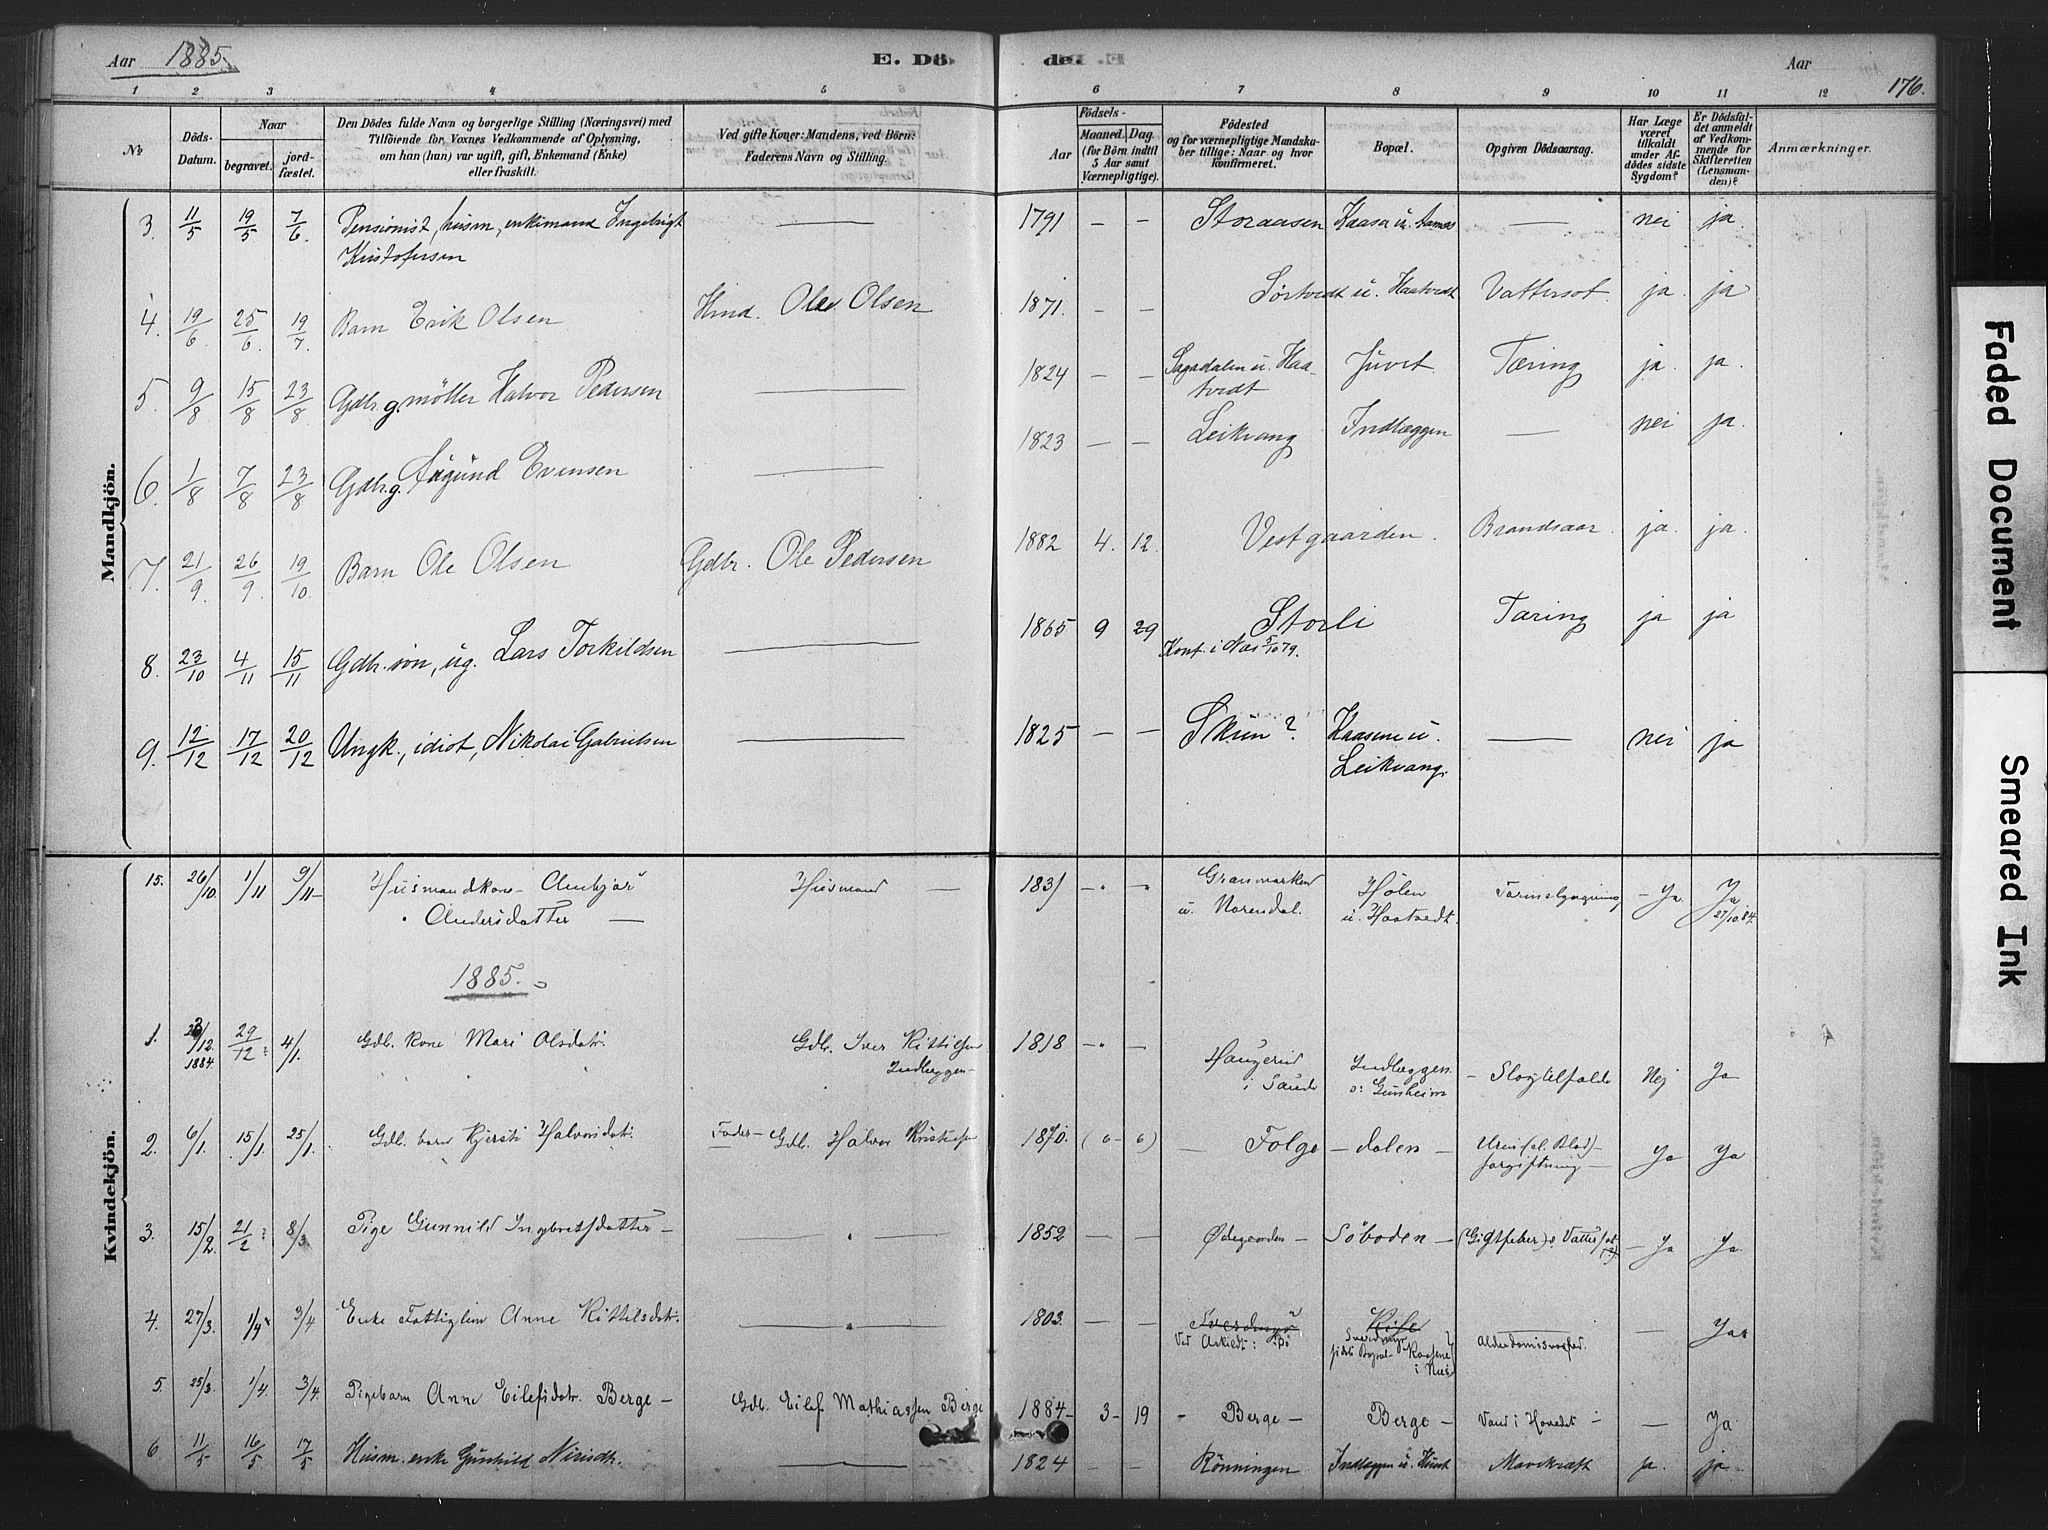 Aar 1885. E. Dö- de. Aar 176.
1 2 3 4 5 6 7 8 9 10 11 12
No. Döds-Datum. Naar begravet. jordfæstet. Den Dödes fulde Navn og borgerlige Stilling (Næringsvei) med Tilföiende for Voxnes Vedkommende af Oplysning, om han (hun) var ugift, gift, Enkemand (Enke) eller fraskilt. Ved gifte Koner: Mandens, ved Börn: Faderens Navn og Stilling. Födsels- Aar Maaned. Dag. (for Börn indtil 5 Aar samt Værnepligtige). Födested og for værnepligtige Mandskaber tillige: Naar og hvor konfirmeret. Bopæl. Opgiven Dödsaarsag. Har Læge været tilkaldt under Afdödes sidste Sygdom? Er Dödsfaldet anmeldt af Vedkommende for Skifteretten (Lensmanden)? Anmærkninger.
Mandkjön.
3. 11/5 19/5 7/6 Pensionist, husm, enkemand Ingebrigt Kristofersen — 1791 — — Storaasen Kaasa u. — nei ja.
4. 19/6 25/6 19/7 Barn Erik Olsen Hmd. Ole Olsen 1871. — — Sørtvedt u. Haatvedt Vattersot ja. ja
5. 9/8 15/8 23/8 Gdbrg. møller Halvor Pedersen — 1824 — — Sagadalen u. Haatvedt Juvet Tæring ja. ja.
6. 1/8 7/8 23/8 Gdbrg. Aagund Evensen — 1823 — — Leikvang Indlæggen — nei ja.
7. 21/9. 26/9. 19/10 Barn Ole Olsen Gdbr. Ole Pedersen 1882 4. 12. Vestgaarden. Brandsaar. ja. ja.
8. 23/10 4/11 15/11 Gdbr.søn, ug. Lars Torkildsen — 1865 9 29 Storli Konf. i Næs 5/10 79. Tæring ja ja
9. 12/12 17/12 20/12 Ungk., idiot, Nikolai Gabrielsen — 1825 — — Skien? Kaasene u. Leikvang. — nei ja
Kvindekjön.
15. 26/10. 1/11 9/11 Husmandskone Anbjør Andersdatter — Husmand — 1831 Granmarken u. Norendal. Hølen u. Haatvedt. Tarmslyngning — Ja. Ja 27/10.84.
1885.
1. 23/12. 1884. 29/12? 4/1. Gdb. kone Mari Olsdatr. Gdb. Iver Kittilsen Indlæggen 1818 — Haugerud i Saude Indlæggen o: Gunheim — Slagtilfælde Nej Ja
2. 6/1. 15/1. 25/1. Gdb. barn Kjersti Halvorsdatr. Fader — Gdb. Halvor Kristensen 1870. (6 - 6) — Folge — dalen — Urin (el. Blod)- forgiftning — Ja Ja
3. 15/2. 21/2? 8/3 Pige Gunnild Ingebretsdatter — 1852 Ødegaarden — Søboden — (Gigtfeber) o Vattersot (?) — Ja Ja.
4. 27/3. 1/4 3/4 Enke Fattiglem Anne Kittilsdatr. 1803. — — Sverdmyr Ved Askildt: Bø Rise Sverdmyr sidste Bopæl Kaasene i Næs Alderdomssvaghed. — Ja.
5. 25/3. 1/4. 3/4. Pigebarn Anne Eilefsdatr. Berge — Gdb. Eilef Mathiassen Berge 1884 — 3 — 19 Berge — Berge — Vand i Hovedet — — Ja
6. 11/5 16/5 17/5 Husm. enke Gunhild Nirisdtr. — 1824 — — Rønningen Indlæggen u. Marvkræft ja. ja.
Faded Document
Smeared Ink